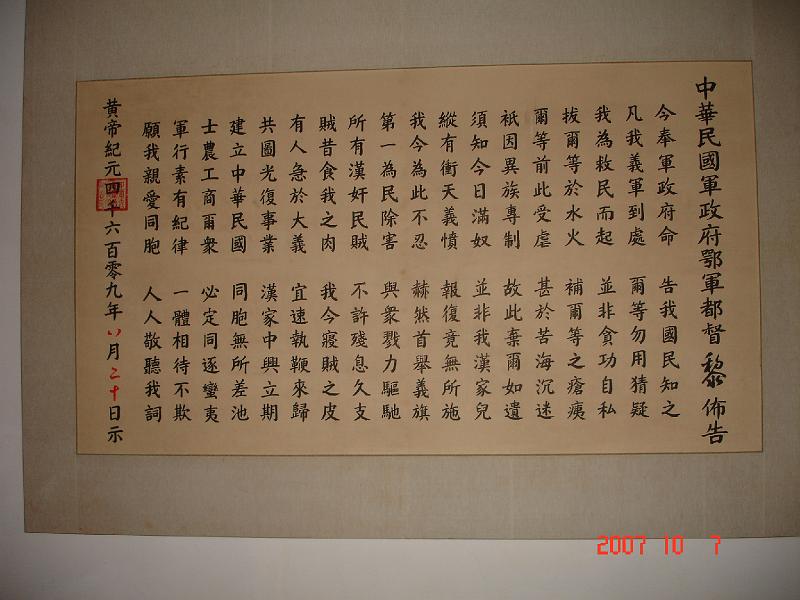 中華民國軍政府鄂軍都督黎佈告
今奉軍政府命 告我國民知之
凡我義軍到處 爾等勿用猜疑
我為救民而起 並非貪功自私
拔爾等於水火 補爾等之瘡痍
爾等前此受虐 甚於苦海沉迷
衹因異族專制 故此棄爾如遺
須知今日滿奴 並非我漢家兒
縱有衝天義憤 報復竟無所施
我今為此不忍 赫然首舉義旗
第一為民除害 與衆戮力驅馳
所有漢奸民賊 不許殘息久支
賊昔食我之肉 我今寢賊之皮
有人急於大義 宜速執鞭來歸
共圖光復事業 漢家中興立期
建立中華民國 同胞無所差池
士農工商爾衆 必定同逐蠻夷
軍行素有紀律 一體相待不欺
願我親愛同胞 人人敬聽我詞
黃帝紀元四千六百零九年八月二十日示
2007 10 7